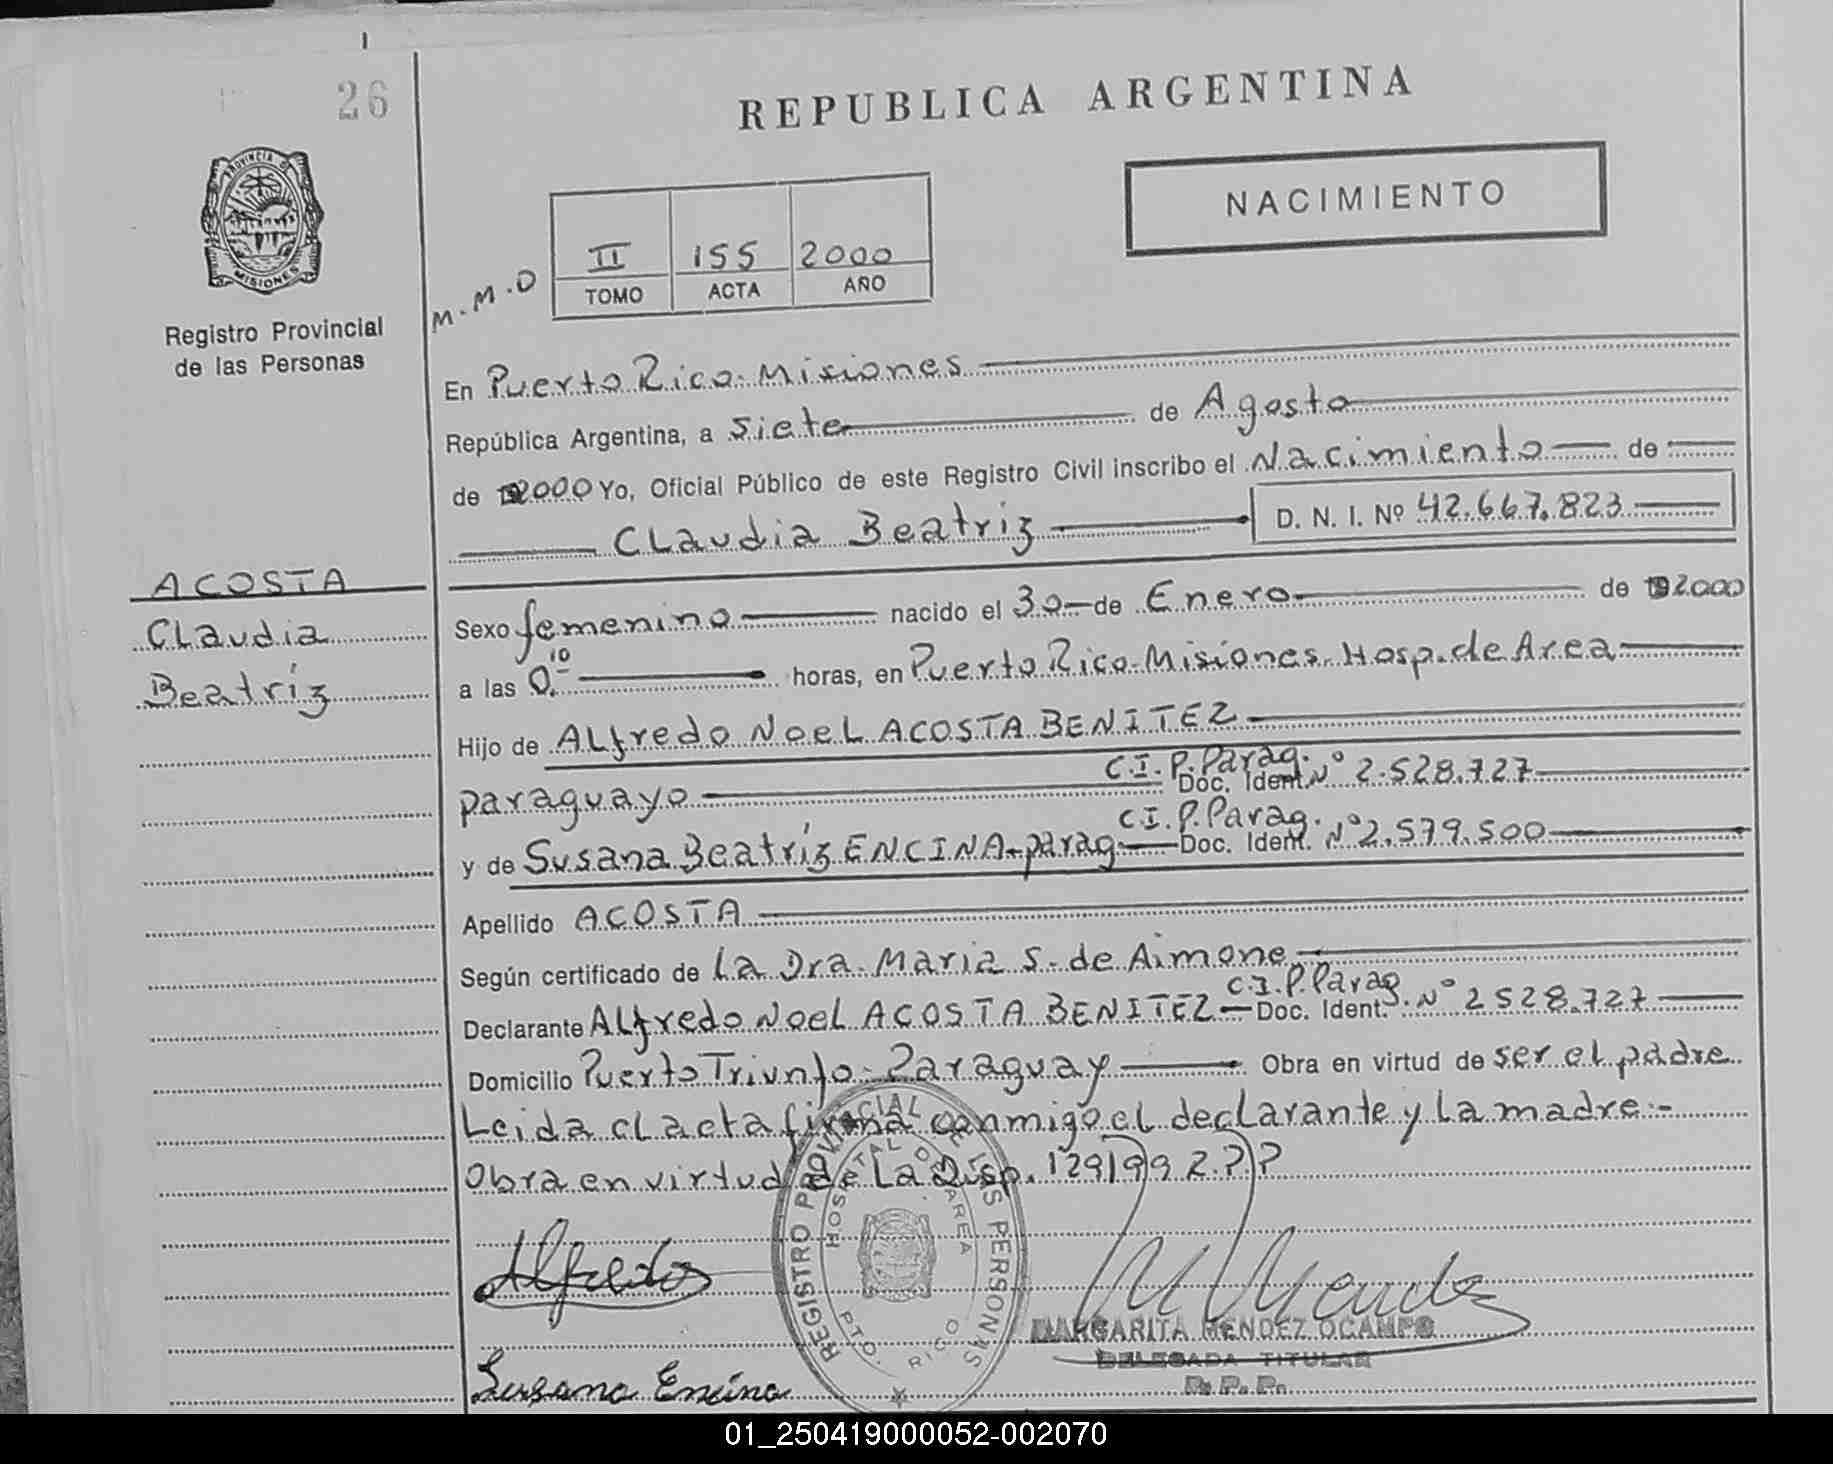 26
REPUBLICA ARGENTINA
NACIMIENTO
PROVINCIA DE
MISIONES
Registro Provincial
de las Personas
M.M.O
II 155 2000
TOMO ACTA AÑO
En Puerto Rico-Misiones
República Argentina, a siete de Agosto
de 2000 Yo, Oficial Público de este Registro Civil inscribo el Nacimiento de
Claudia Beatríz D. N. I. Nº 42.667.823
ACOSTA
Claudia
Beatríz
Sexo femenino nacido el 30 de Enero de 2000
a las 0.10 horas, en Puerto Rico-Misiones. Hosp. de Area
Hijo de Alfredo Noel ACOSTA BENITEZ
paraguayo C.I.P. Parag. Doc. Ident. Nº 2.528.727
y de Susana Beatríz ENCINA-parag C.I.P. Parag. Doc. Ident. Nº 2.579.500
Apellido ACOSTA
Según certificado de la Dra. Maria S. de Aimone
Declarante Alfredo Noel ACOSTA BENITEZ C.I.P. Parag. Doc. Ident. Nº 2528.727
Domicilio Puerto Triunfo-Paraguay Obra en virtud de ser el padre
Leida el acta firma conmigo el declarante y la madre.-
Obra en virtud de La Disp. 129/992.??
REGISTRO PROVINCIAL DE LAS PERSONAS
HOSPITAL DE AREA
PTO. RICO
Alfredo
Susana Encina
M Mendez
MARGARITA MENDEZ OCAMPO
DELEGADA TITULAR
R. P. P.
01_250419000052-002070